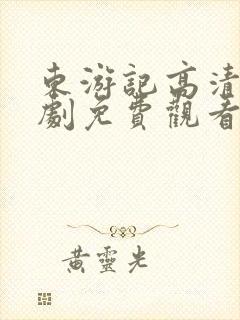 東游記高清
劇免費觀看
黃靈光